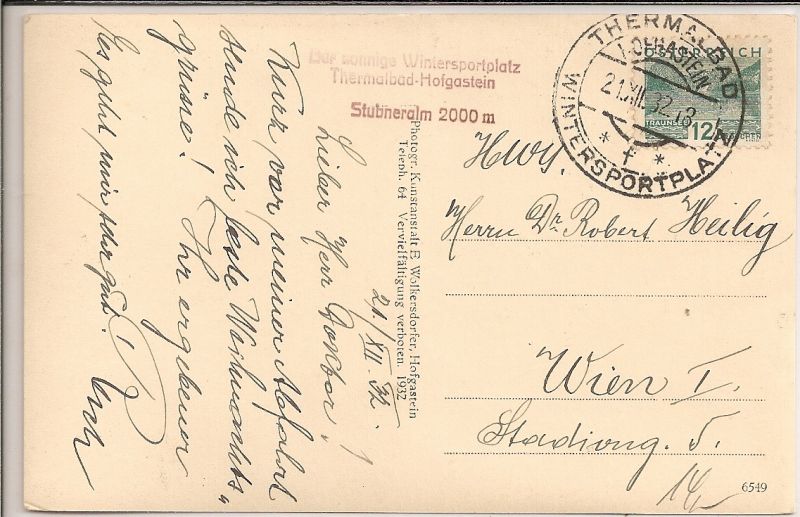 Der sonnige Wintersportplatz
Thermalbad-Hofgastein
Stubneralm 2000 m
THERMALBAD
HOFGASTEIN
21.XII.32.13
* † *
WINTERSPORTPLATZ
ÖSTERREICH
TRAUNSEE
12
GROSCHEN
21./XII. 32.
Lieber Herr Doktor!
Kurz vor meiner Abfahrt
sende ich beste Weihnachts-
grüsse! Ihr ergebener
Es geht mir sehr gut!
Photogr. Kunstanstalt E. Wolkersdorfer, Hofgastein
Teleph. 64 Vervielfältigung verboten. 1932
Herrn Dr. Robert Heilig
Wien I.
Stadiong. 5.
14/
6549